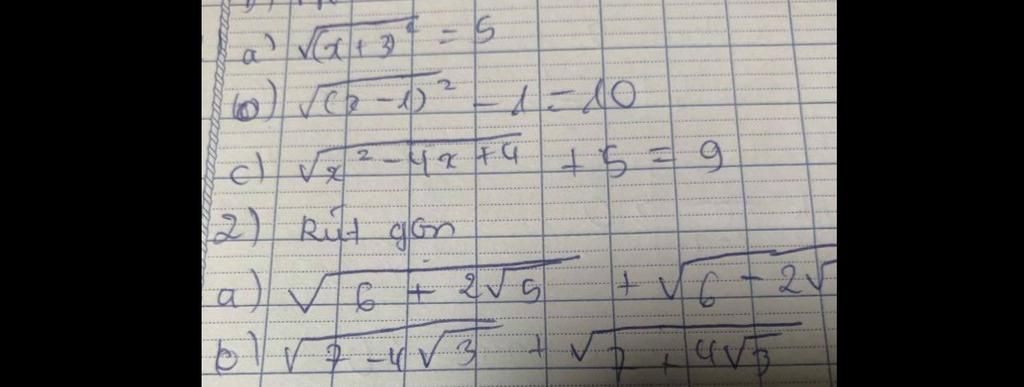 a) √(x+3)² = 5
b) √(x-1)² - 1 = 10
c) √x²-4x+4 + 5 = 9
2) Rút gọn
a) √6 + 2√5 + √6 - 2√
b) √7-4√3 + √7+4√3